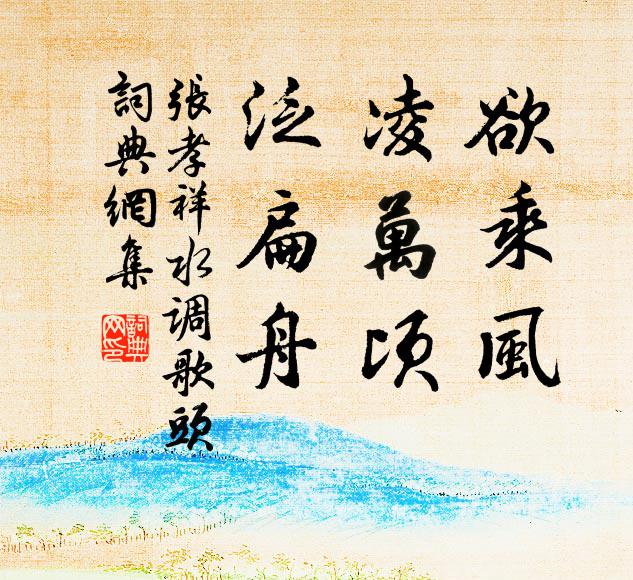 欲乘風
凌萬頃
泛扁舟
張孝祥水调歌頭
詞典網集
詞典網印